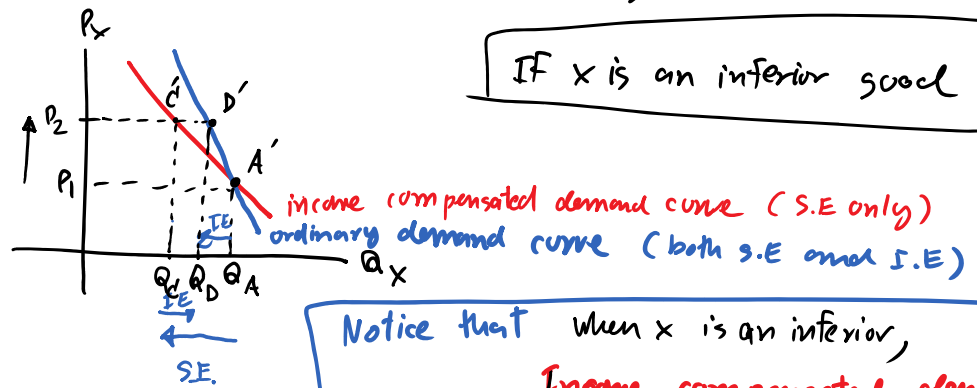 Px
IF x is an inferior good
C' D'
P2
A'
P1
income compensated demand curve (S.E only)
IE
ordinary demand curve (both s.E and I.E)
QC QD QA Qx
IE
Notice that when x is an inferior,
S.E.
Income compensated